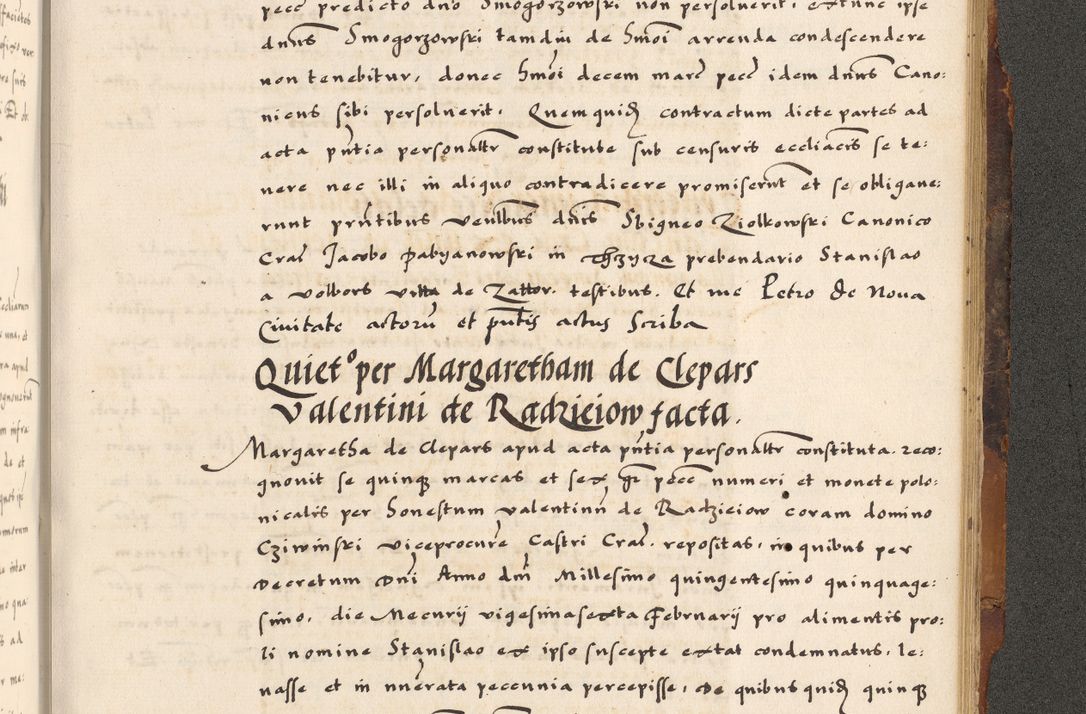 pecc predicto dno Smogorzowski non persolverit, extunc ipse
dnus Smogorzowski tamdiu de hmoi arrenda condescendere
non tenebitur, donec hmoi decem marc pecc idem dnus Cano:
nicus sibi persolverit. Quemquid contractum dicte partes ad
acta pntia personalitr constitute sub censuris eccliacis se te:
nere nec illi in aliquo contradicere promiserunt et se obligave:
runt pntibus venlbus dnis Sbigneo Ziolkowski Canonico
Crac Jacobo Pabyanowski in Thzyza prebendario Stanislao
a Volbors villa de Zattor. testibus. Et me Petro de Nova
Civitate actoru et pntis actus Scriba
Quieto per Margaretham de Clepars
Valentini de Radzieiow facta.
Margaretha de Clepars apud acta pntia personalitr constituta. reco:
gnovit se quinqz marcas et sex gr pecc numeri et monete polo:
nicalis per honestum Valentinu de Radzieiow coram domino
Cziwinski viceprocure Castri Crac. repositas, in quibus per
Decretum Dni Anno dni Millesimo quingentesimo quinquage:
simo, die Mecurij vigesimasexta Februarij pro alimentis pro:
li nomine Stanislao ex ipso suscepte extat condemnatus, le:
vasse et in nuerata peccunia percepisse, De quibus quid quinqz